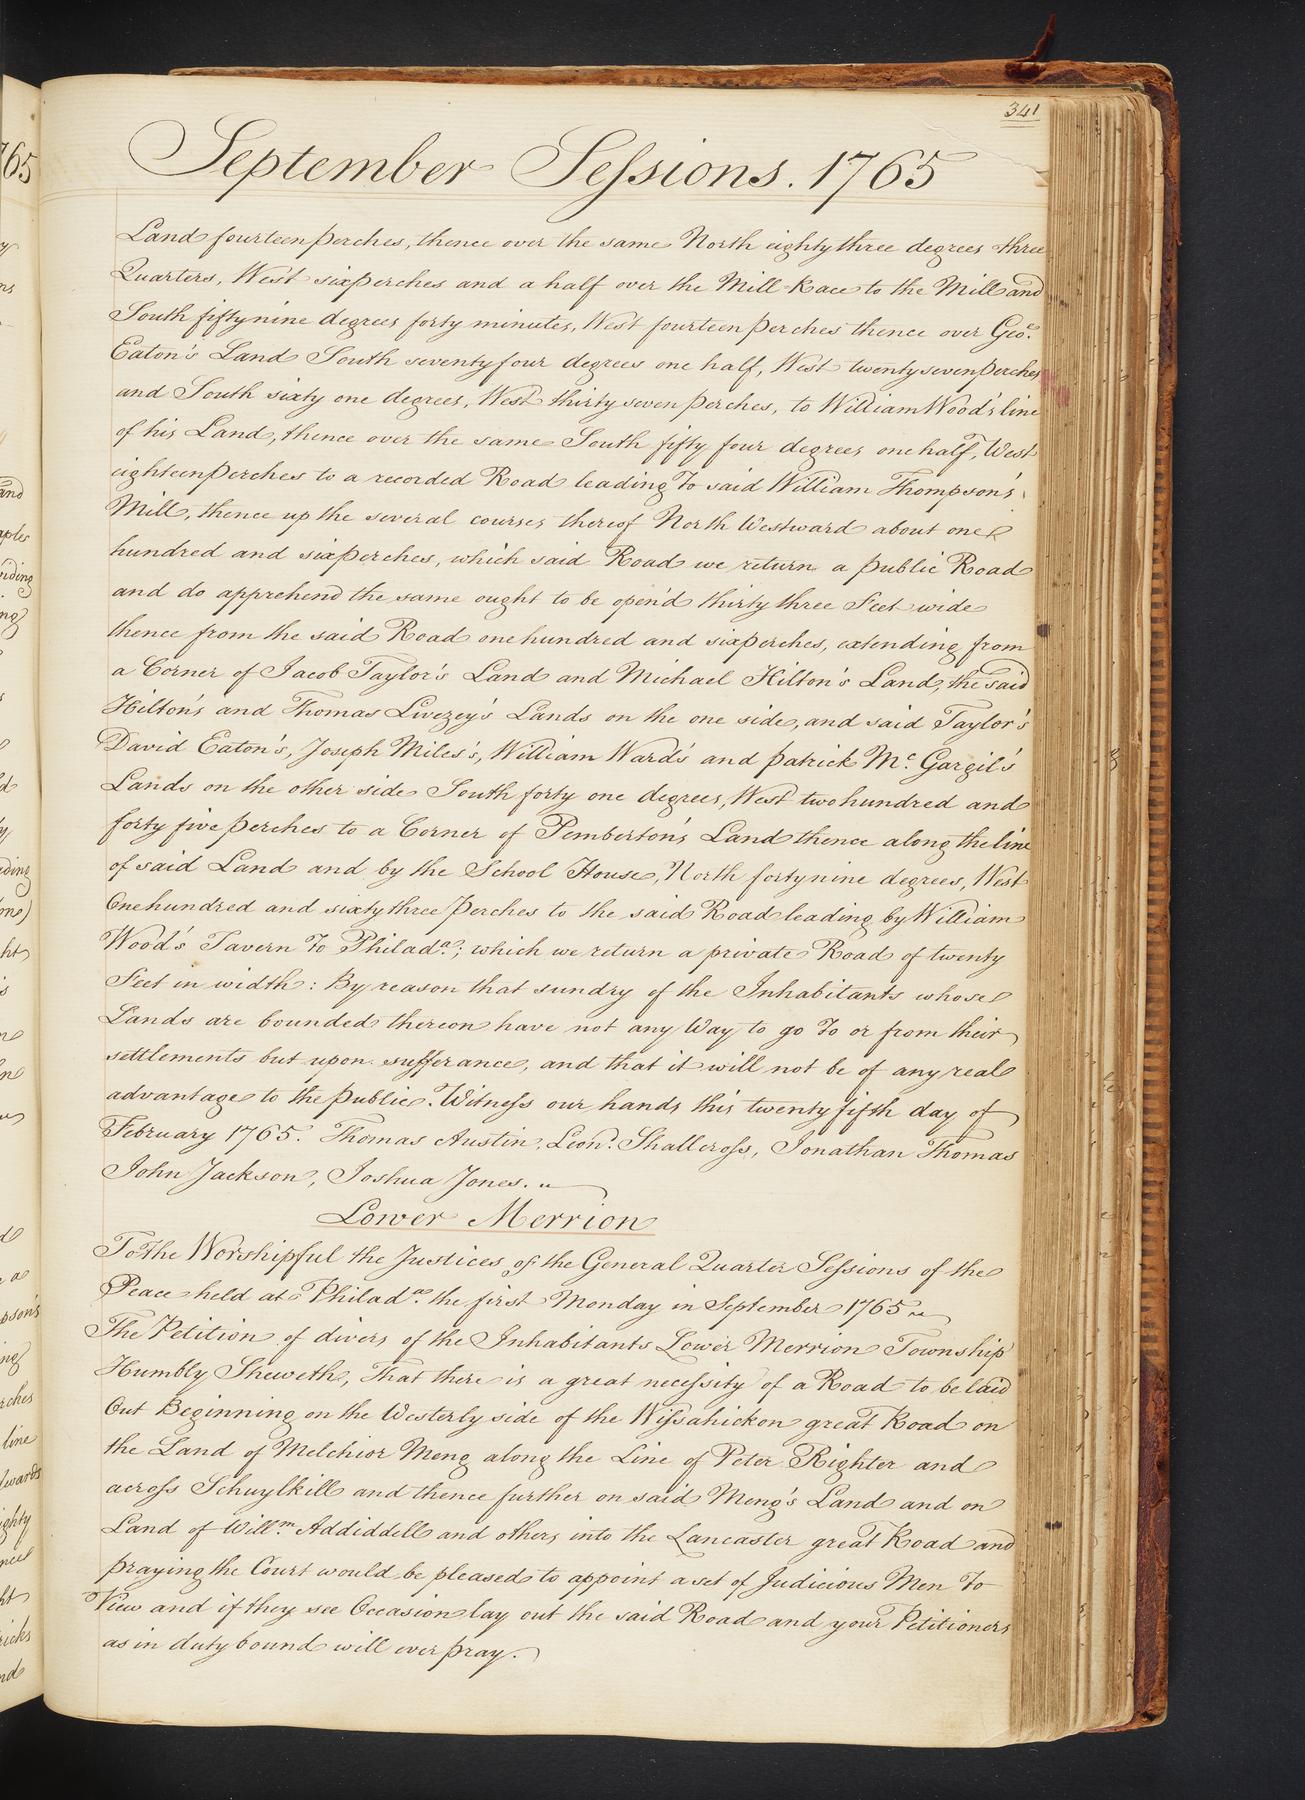 341
September Sessions. 1765
Land fourteen perches, thence over the same North eighty three degrees three
Quarters, West six perches and a half over the Mill-Race to the Mill and
South fifty nine degrees forty minutes, West fourteen perches thence over Geo:
Eaton's Land South seventy four degrees one half, West twenty seven perches
and South sixty one degrees, West thirty seven perches, to William Wood's line
of his Land, thence over the same South fifty four degrees one half, West
eighteen perches to a recorded Road leading To said William Thompson's
Mill, thence up the several courses thereof North Westward about one
hundred and six perches, which said Road we return a public Road
and do apprehend the same ought to be open'd thirty three Feet wide
thence from the said Road one hundred and six perches, extending from
a Corner of Jacob Taylor's Land and Michael Hilton's Land, the said
Hilton's and Thomas Livezey's Lands on the one side, and said Taylor's
David Eaton's, Joseph Miles's, William Ward's and Patrick Mc. Gargil's
Lands on the other side South forty one degrees, West two hundred and
forty five perches to a Corner of Pemberton's Land thence along the line
of said Land and by the School House, North forty nine degrees, West
One hundred and sixty three perches to the said Road leading by William
Wood's Tavern To Philada.; which we return a private Road of twenty
Feet in width: By reason that sundry of the Inhabitants whose
Lands are bounded thereon have not any Way to go To or from their
settlements but upon sufferance, and that it will not be of any real
advantage to the public. Witness our hands this twenty fifth day of
February 1765. Thomas Austin, Leond. Shallcross, Jonathan Thomas
John Jackson, Joshua Jones.
Lower Merrion
To the Worshipful the Justices of the General Quarter Sessions of the
Peace held at Philada. the first Monday in September 1765
The Petition of divers of the Inhabitants Lower Merrion Township
Humbly Sheweth, That there is a great necessity of a Road to be laid
Out Beginning on the Westerly side of the Wissahickon great Road on
the Land of Melchior Meng along the Line of Peter Righter and
across Schuylkill and thence further on said Meng's Land and on
Land of Willm. Addiddell and others into the Lancaster great Road and
praying the Court would be pleased to appoint a set of Judicious Men To
View and if they see Occasion lay out the said Road and your Petitioners
as in duty bound will ever pray.